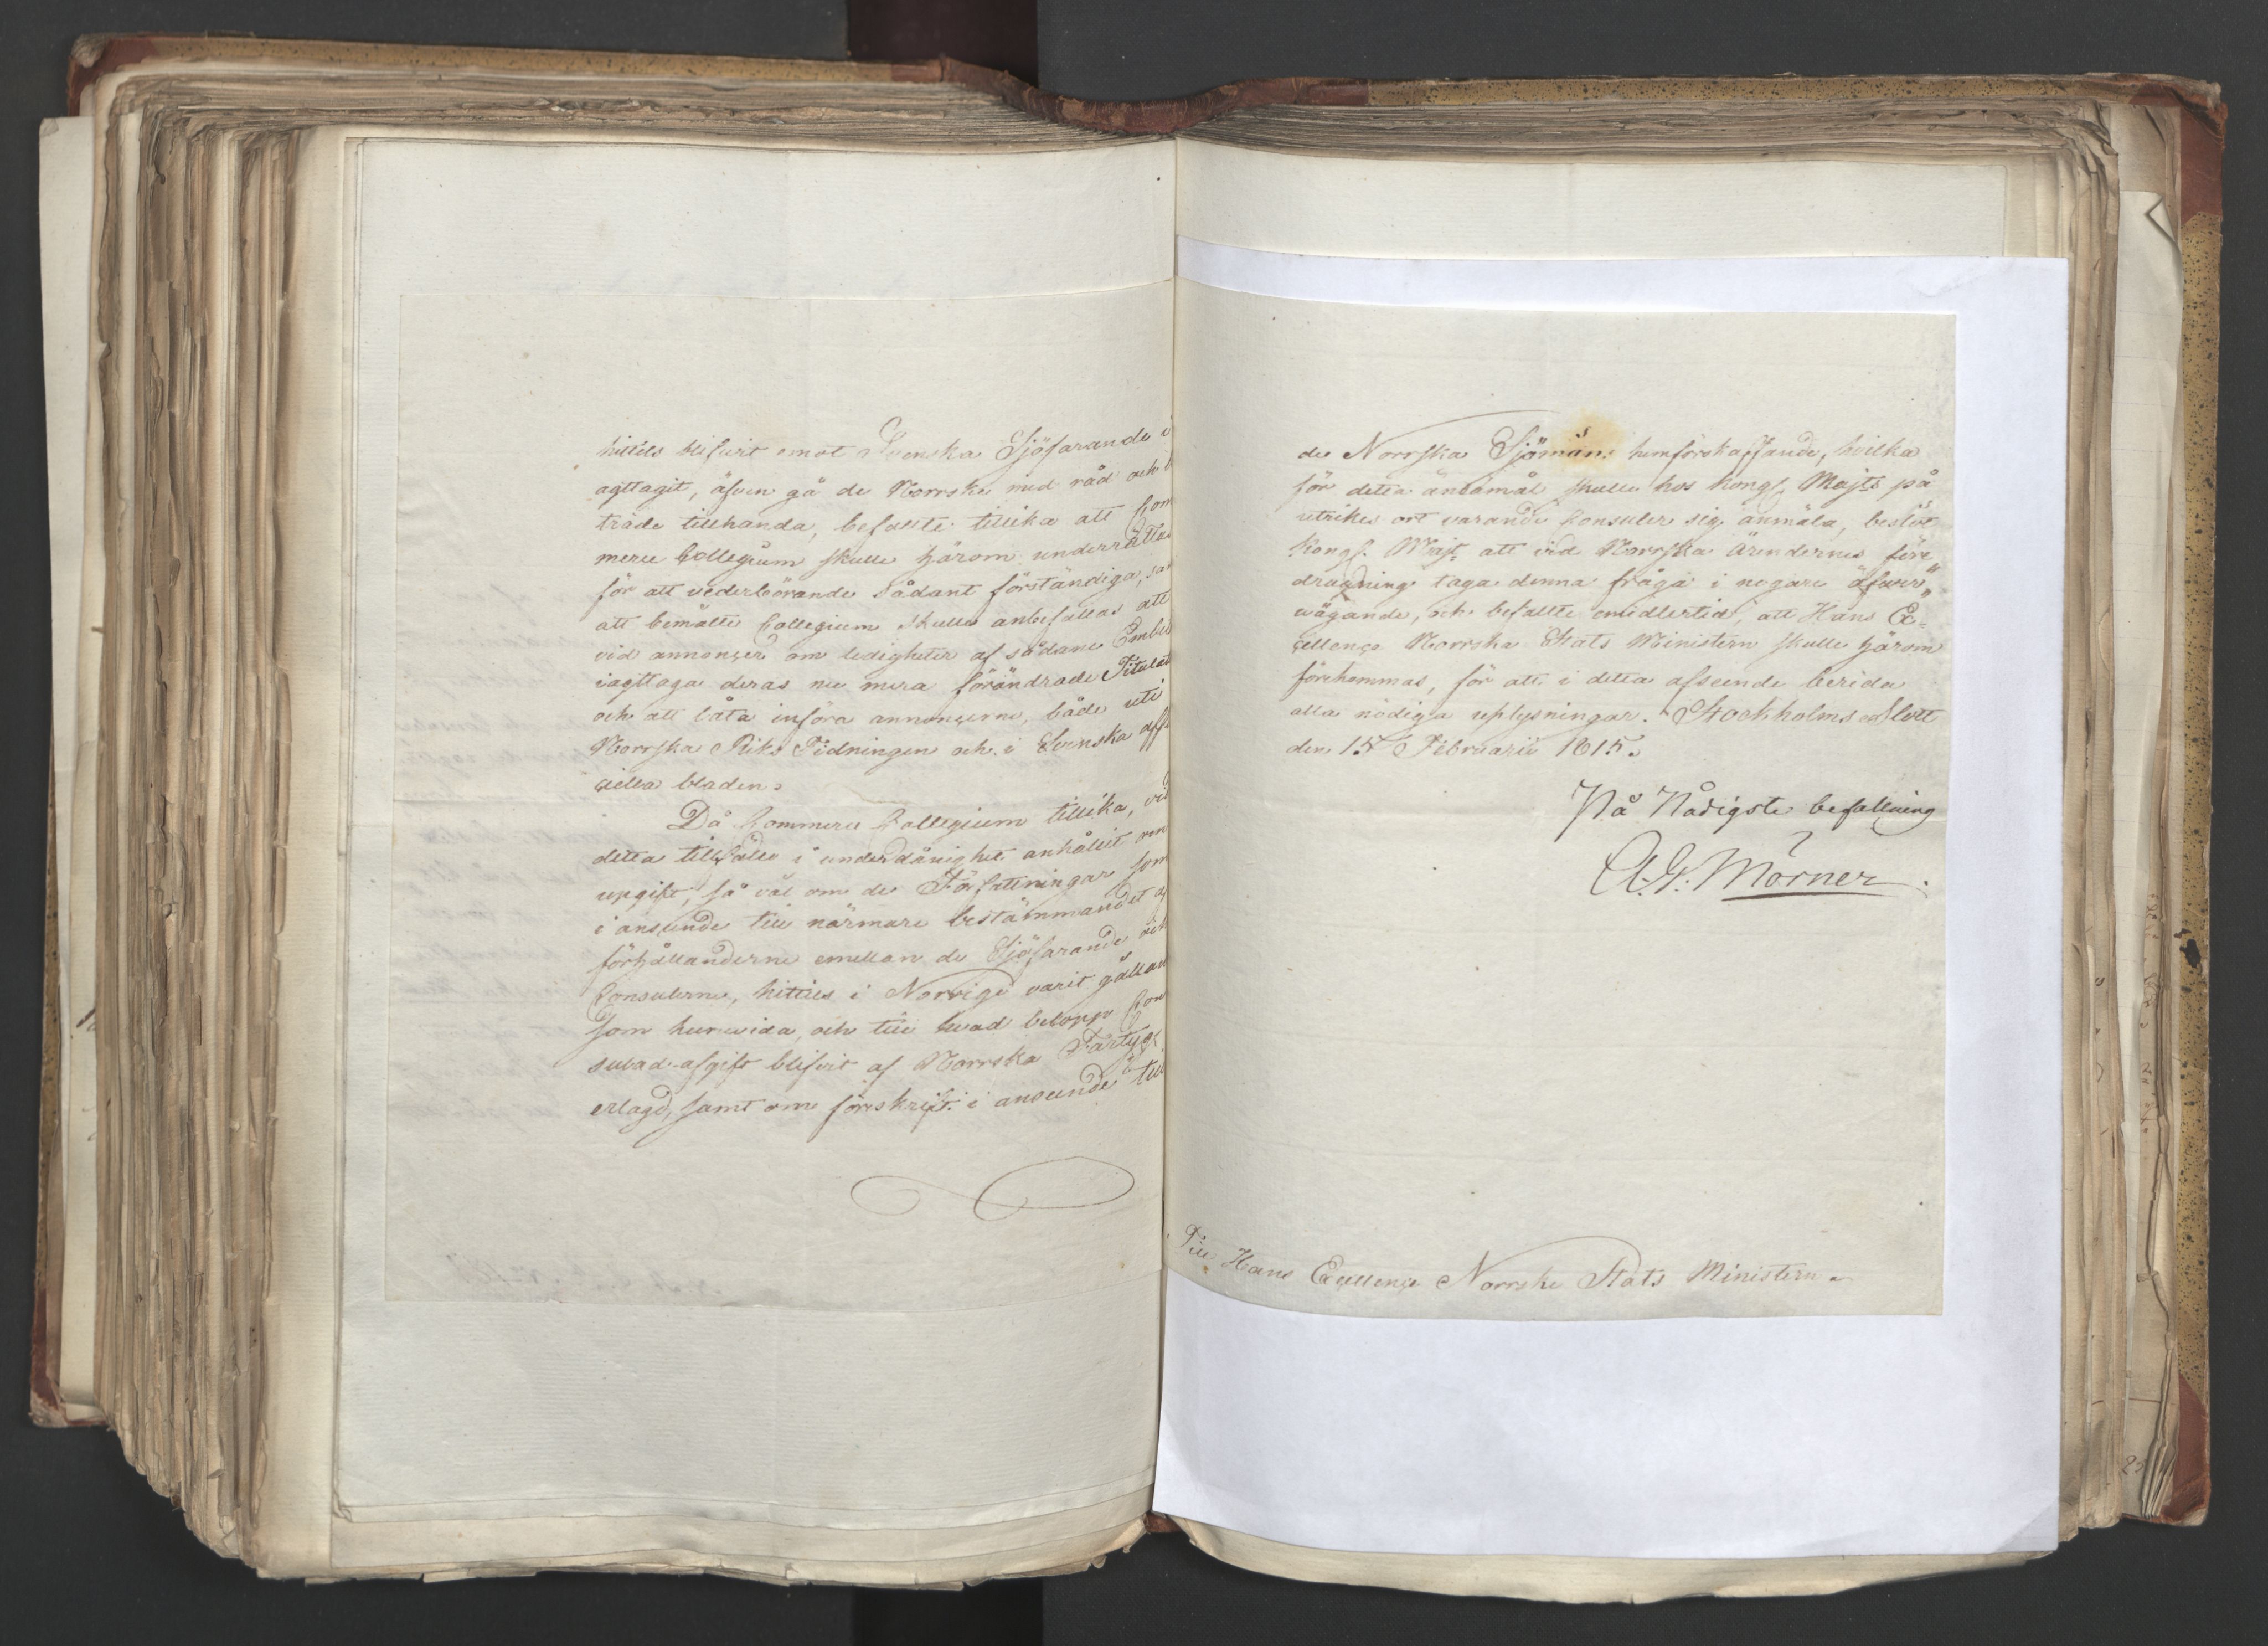 hittils blifvit emot Svenska Sjöfarande i
agttagit, äfven gå de Norrske med råd och b
träde tillhanda, befallte tillika att Com
merce Collegium skulle härom underrättas
för att vederbörande sådant förständiga, sa
att bemälte Collegium skulle anbefallas att
vid annonçer om ledigheter af sådane Embe
iagttaga deras nu mera förändrade Titulat
och att låta införa annonçerne, både uti
Norrska Riks Tidningen och i Svenska offi
ciella bladen.
Då Commerce Collegium tillika, vid
detta tillfälle i underdånighet anhållit om
upgift, så väl om de Författningar som
i anseende till närmare bestämmandet af
förhållanderne emellan de Sjöfarande och
Consulerne, hittils i Norrige varit gällan
som huruvida, och till hvad belopp Con
sulad-afgift blifvit af Norrska Fartyg
erlagd, samt om föreskrift i anseende till
de Norrska Sjömäns hemförskaffande, hvilka
för detta ändamål skulle hos Kongl. Majts på
utrikes ort varande Consuler sig anmäla, beslöt
Kongl. Majt att vid Norrska Ärendernes före
dragning taga denna fråga i nogare öfver„
vägande, och befallte emidlertid, att Hans Ex=
cellençe Norrska Stats Ministern skulle härom
förekommas, för att i detta afseende bereda
alla nödiga uplysningar. Stockholms Slott
den 15 Februarii 1815.
På Nådigste befallning
A. G. Mörner.
Till Hans Excellençe Norrske Stats Ministern